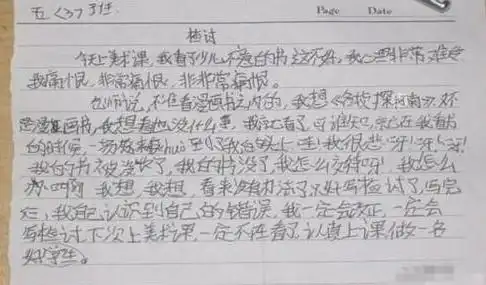 五〈3〉班
Page Date
检讨
今天上美术课,我看了少儿不宜的书这不好,我心里非常难受
我痛恨,非常痛恨,非非常痛恨。
老师说,不准看漫画书之内的,我想《名侦探柯南》又不
是漫画书,我想看也没什么事,我就看了,可谁知,就在我看书
的时候,一场灾难huo到了我的头上,
我的书被没收了,我的书没了,我怎么这样呀!我怎么
办啊 我想,我想,看来没有办法了只好写检讨了,写完
后,我自己认识到自己的错误,我一定会改正,一定会
写检讨下次上美术课,一定不在看了认真上课做一名
好学生。